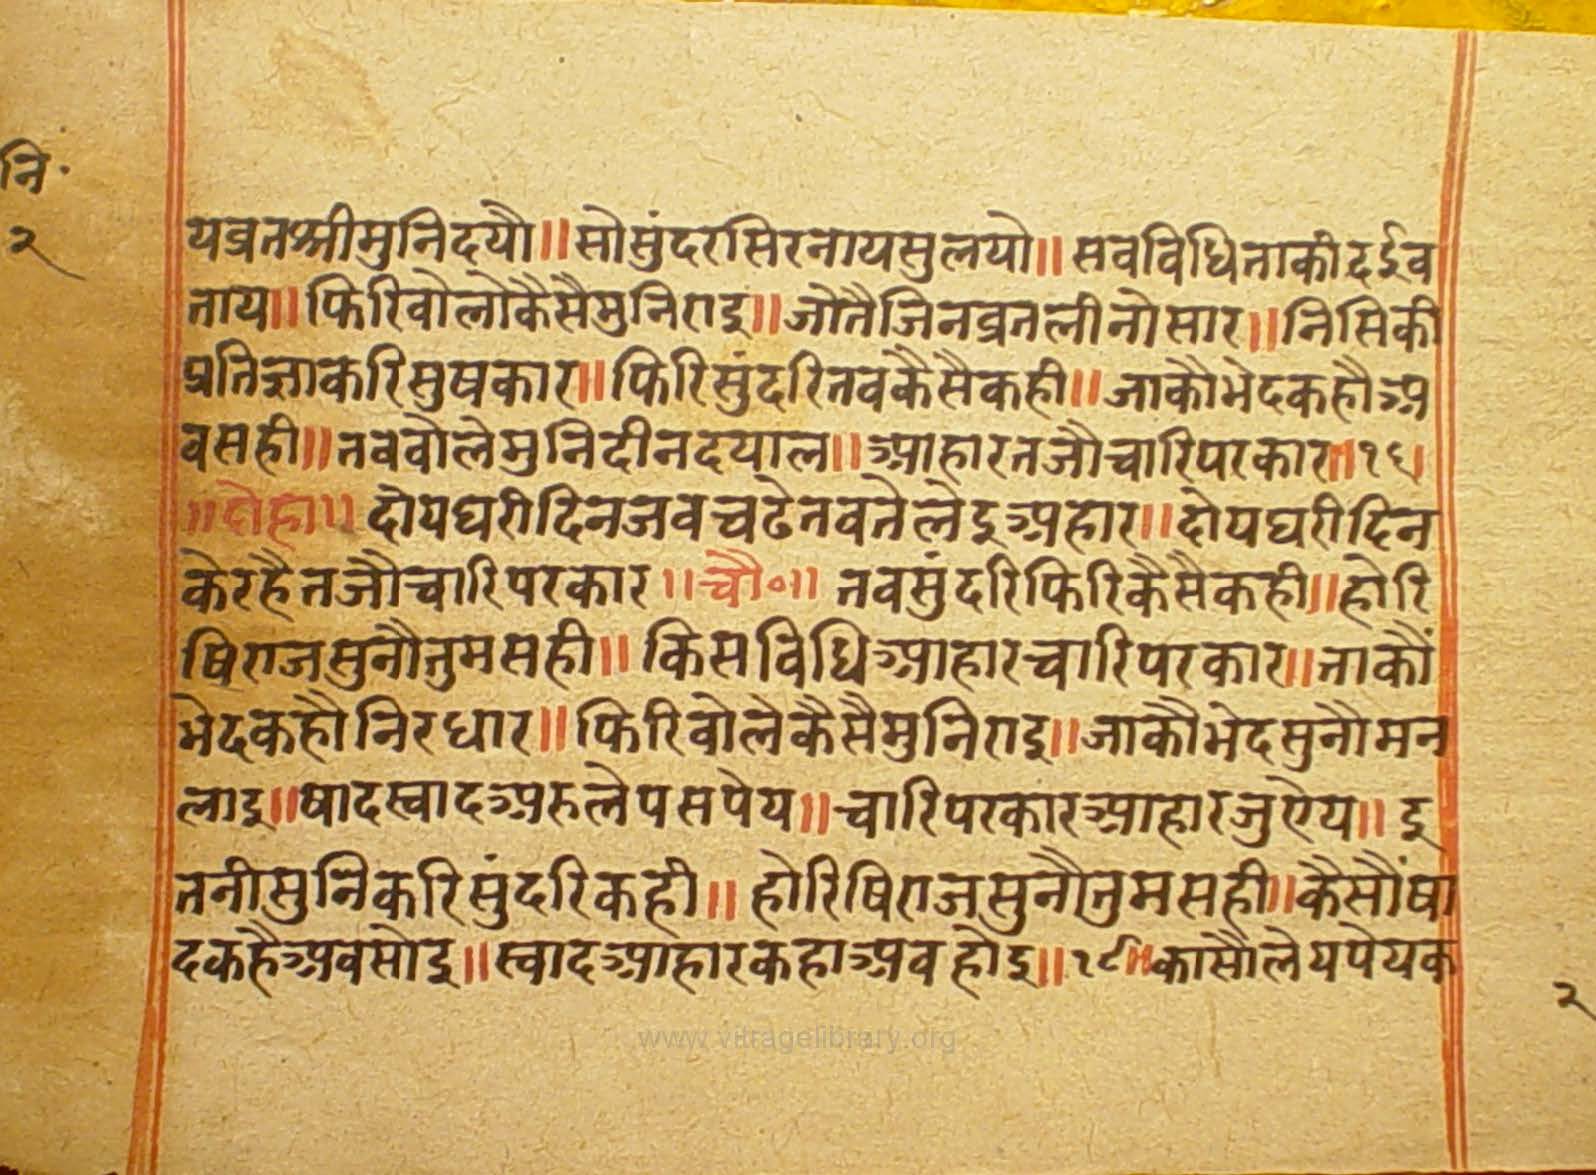 नि॰
२
यव्रतश्रीमुनिदयौ॥सोसुंदरसिरनायसुलयो॥सवविधिताकीदईव
ताय॥फिरिवोलोकैसैमुनिराइ॥जोतैजिनव्रतलीनोसार॥निसिकी
प्रतिज्ञाकरिसुषकार॥फिरिसुंदरितवकैसैकही॥जाकौभेदकहौअ
वसही॥तववोलेमुनिदीनदयाल॥आहारतजौचारिपरकार॥१६।
॥दोहा॥ दोयघरीदिनजवचढेतवतेलेइअहार॥दोयघरीदिन
केरहैतजौचारिपरकार॥चौ०॥ तवसुंदरिफिरिकैसैकही॥होरि
षिराजसुनौतुमसही॥किसविधिआहारचारिपरकार॥ताकौं
भेदकहौनिरधार॥फिरिवोलेकैसैमुनिराइ॥जाकौभेदसुनौमन
लाइ॥षादस्वादअरुलेपसपेय॥चारिपरकारआहारजुऐय॥इ
तनीसुनिकरिसुंदरिकही॥होरिषिराजसुनौतुमसही॥कैसौंषा
दकहैअवसोइ॥स्वादआहारकहाअवहोइ॥१८॥कासौलेयपेयक
२
www.vitragelibrary.org